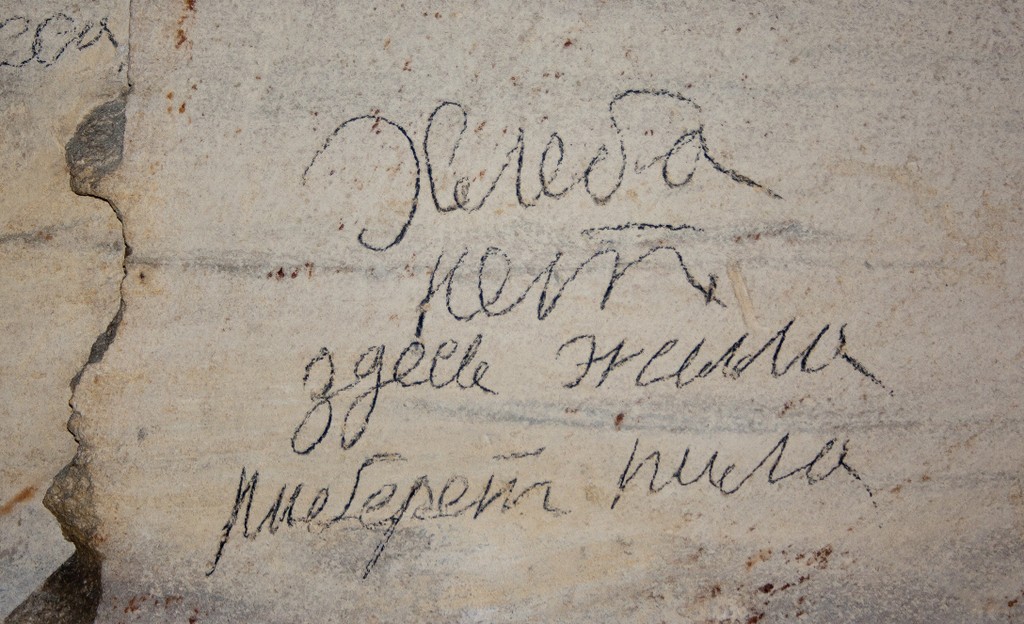 Хлеба
нет
здесь жила
неберет пила